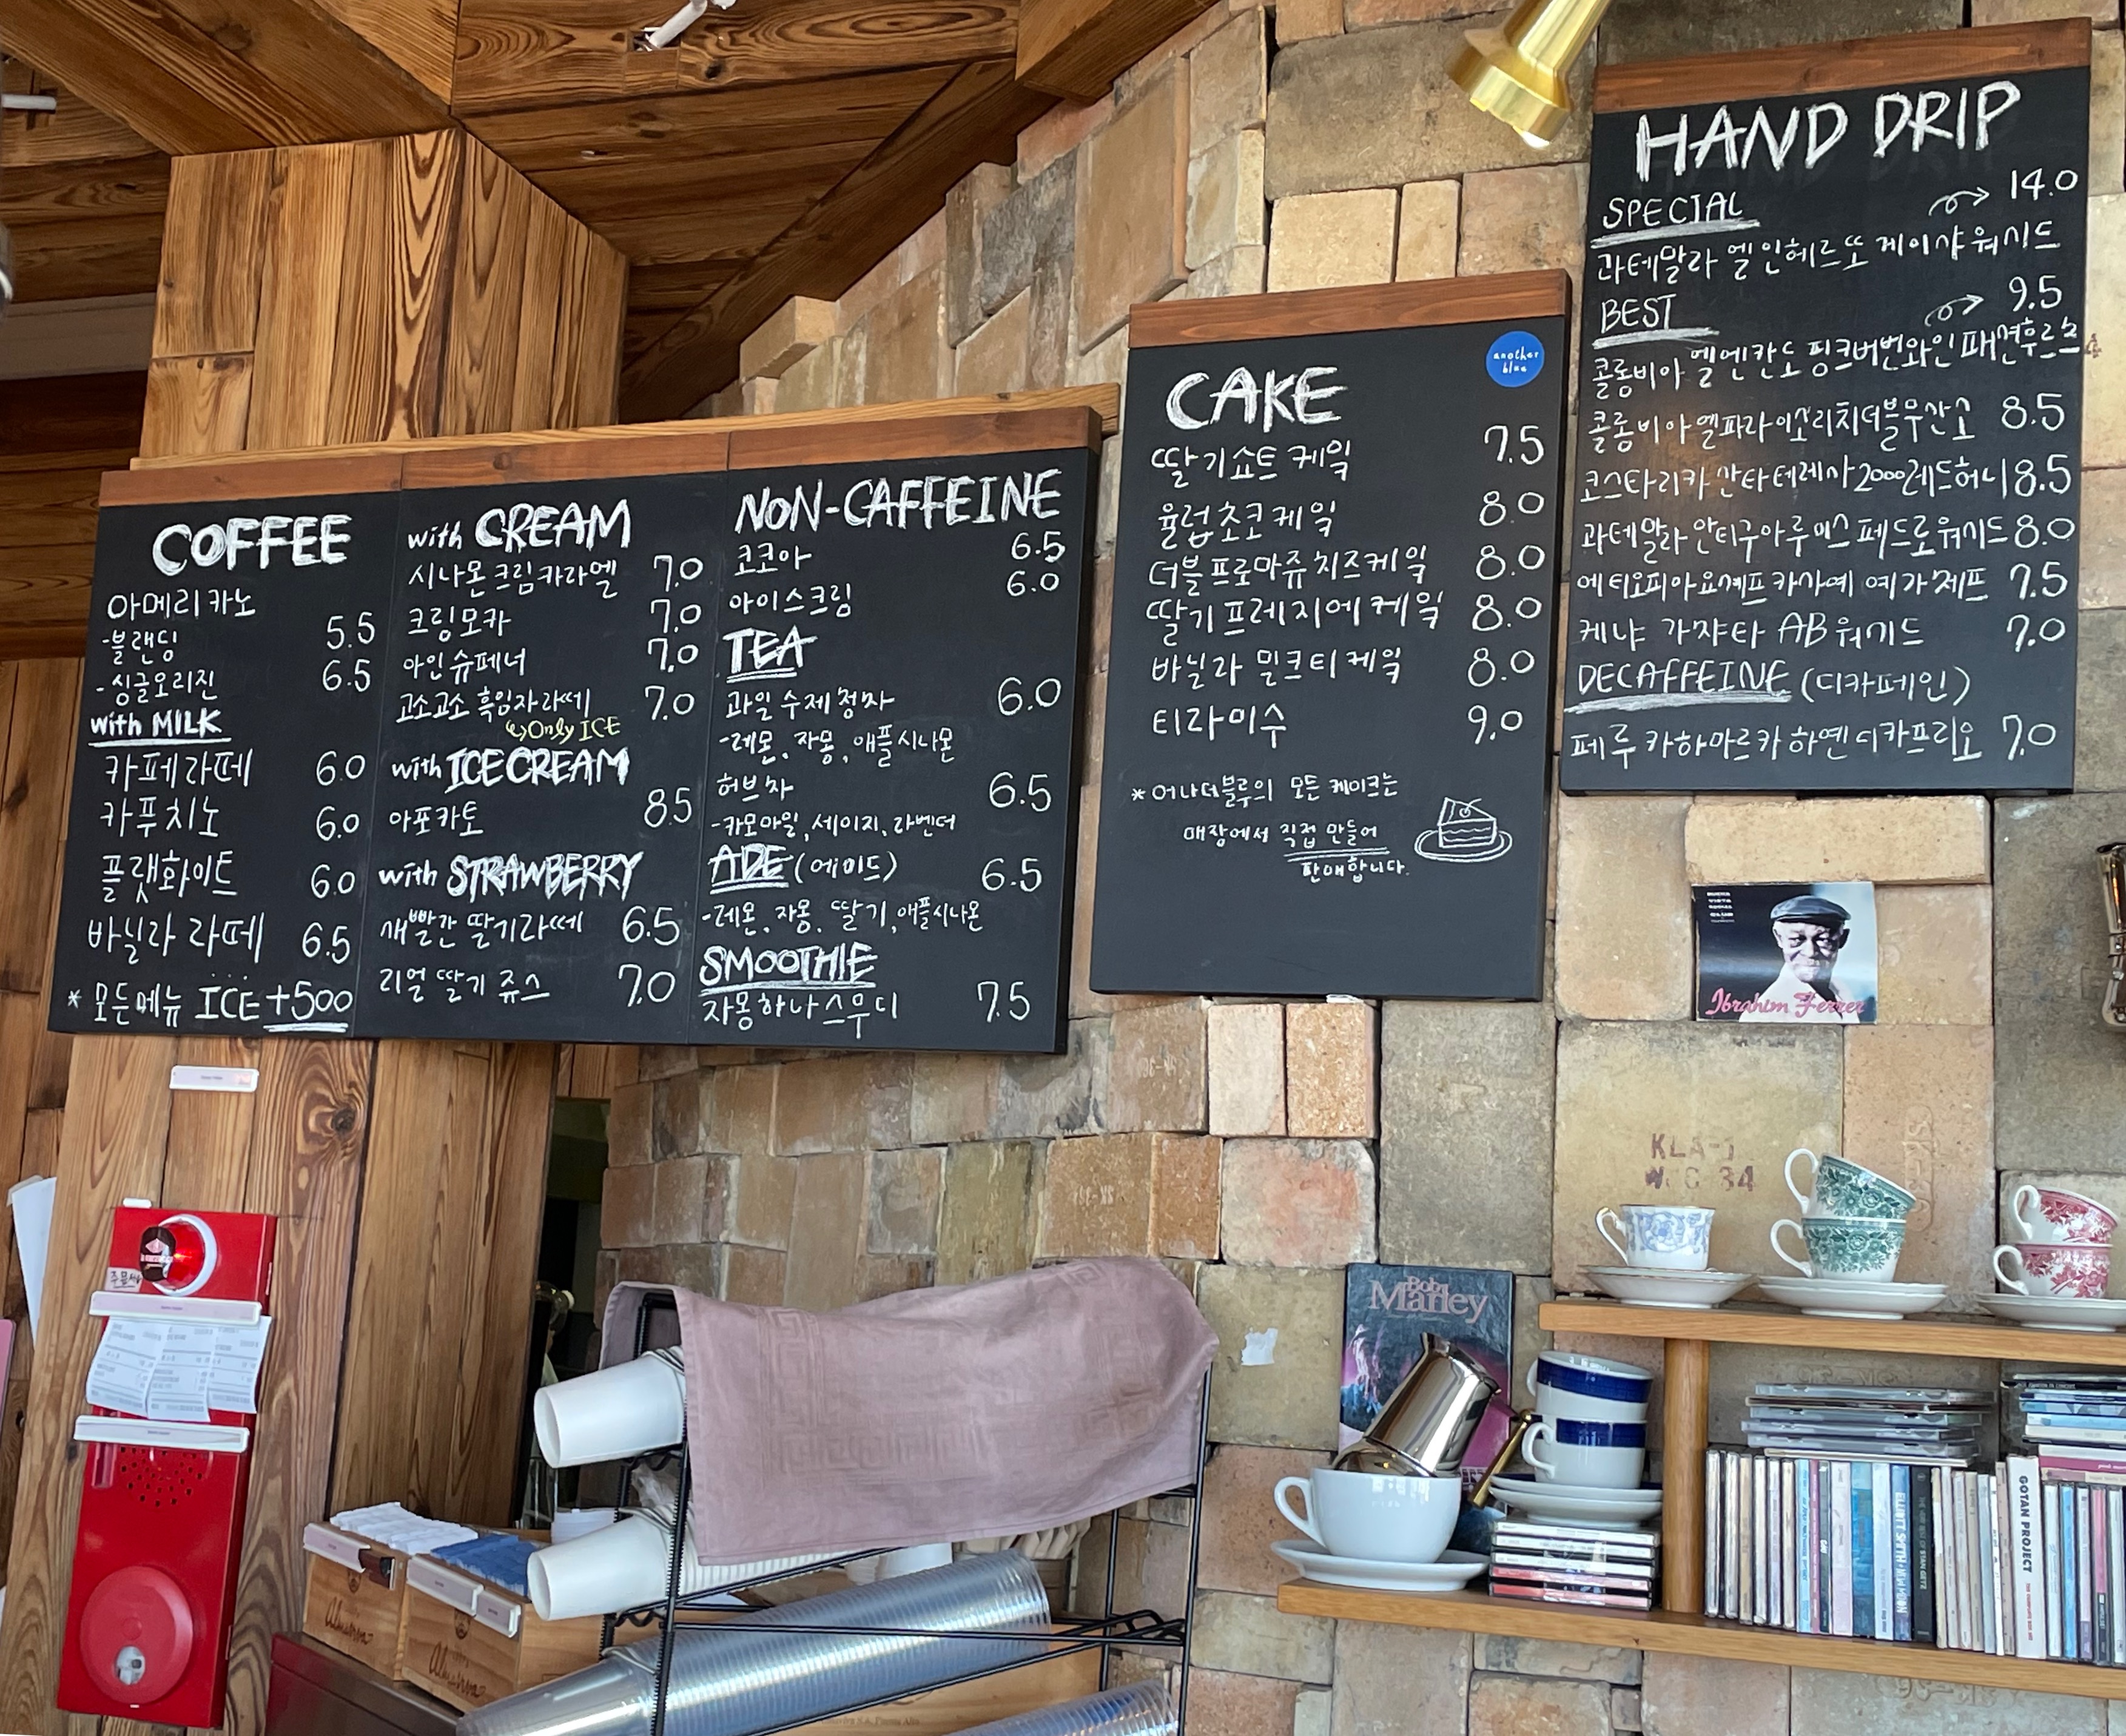 COFFEE
아메리카노
-블랜딩 5.5
-싱글오리진 6.5
with MILK
카페라떼 6.0
카푸치노 6.0
플랫화이트 6.0
바닐라 라떼 6.5
* 모든메뉴 ICE +500
with CREAM
시나몬크림카라멜 7.0
크림모카 7.0
아인슈페너 7.0
고소고소 흑임자라떼 7.0
Only ICE
with ICECREAM
아포카토 8.5
with STRAWBERRY
새빨간 딸기라떼 6.5
리얼 딸기 쥬스 7.0
NON-CAFFEINE
코코아 6.5
아이스크림 6.0
TEA
과일수제청차 6.0
-레몬, 자몽, 애플시나몬
허브차 6.5
-카모마일, 세이지, 라벤더
ADE (에이드) 6.5
-레몬, 자몽, 딸기, 애플시나몬
SMOOTHIE
자몽하나스무디 7.5
another
blue
CAKE
딸기쇼트케잌 7.5
율럽초코케잌 8.0
더블프로마쥬치즈케잌 8.0
딸기프레지에케잌 8.0
바닐라 밀크티케잌 8.0
티라미수 9.0
* 어나더블루의 모든 케이크는
매장에서 직접 만들어
판매합니다.
HAND DRIP
SPECIAL 14.0
과테말라 엘인헤르또 게이샤워시드
BEST 9.5
콜롬비아 엘엔칸토 핑크버번와인 패션후르츠
콜롬비아엘파라이소리치더블무산소 8.5
코스타리카 산타테레사2000레드허니 8.5
과테말라안티구아루미스 페드로워시드 8.0
에티오피아요게프카사예 예가체프 7.5
케냐 가쟈타 AB워시드 7.0
DECAFFEINE (디카페인)
페루 카하마르카 하엔디카프리오 7.0
Ibrahim Ferrer
KLA-1
W.C 34
Bob
Marley
GOTAN PROJECT